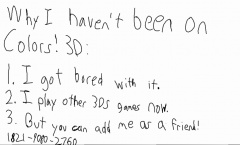 Why I haven't been on
Colors! 3D:
1. I got bored with it.
2. I play other 3DS games now.
3. But you can add me as a friend!
1821-9090-2760